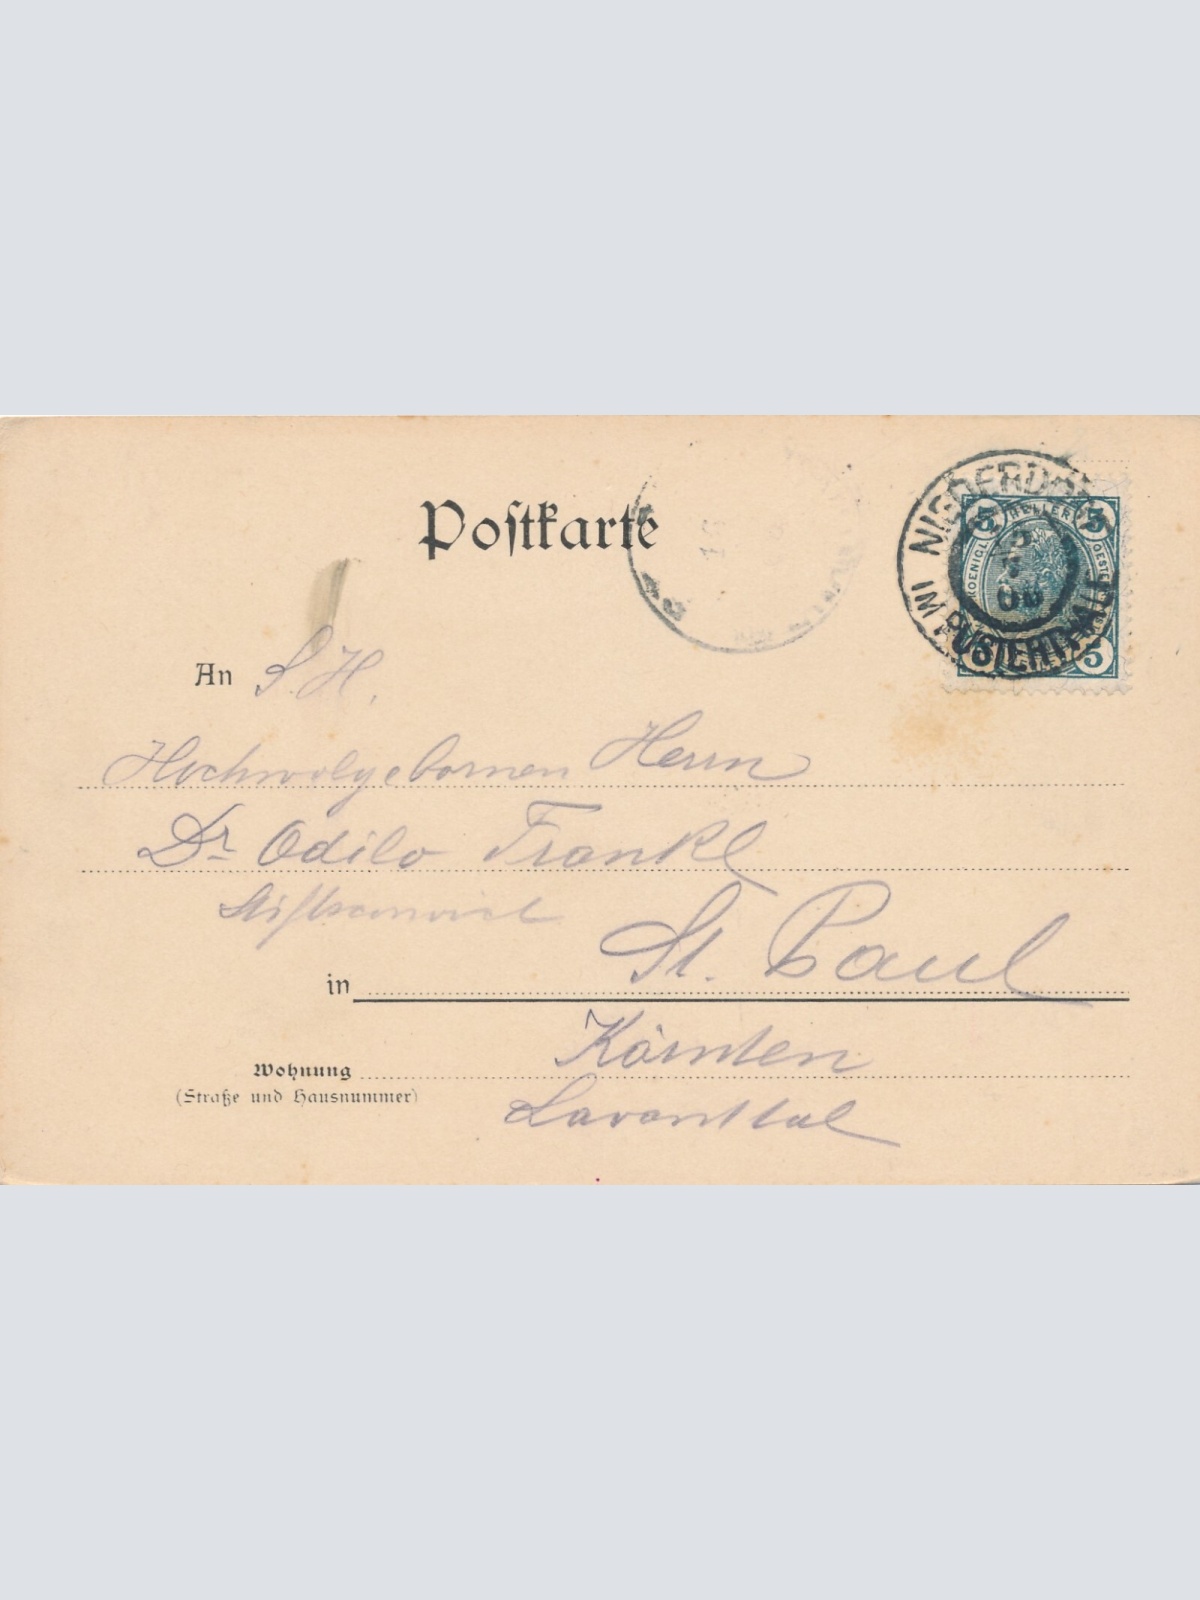 Postkarte
NIEDERDO
IM PUSTERTHALE
5 HELLER 5
KOENIGL. OESTERR
5
7
06
5 5
An S. H.
Hochwolgebornen Herrn
Dr Odilo Frankl
St. Paul
in
Kärnten
Wohnung
(Straße und Hausnummer)
Lavanttal